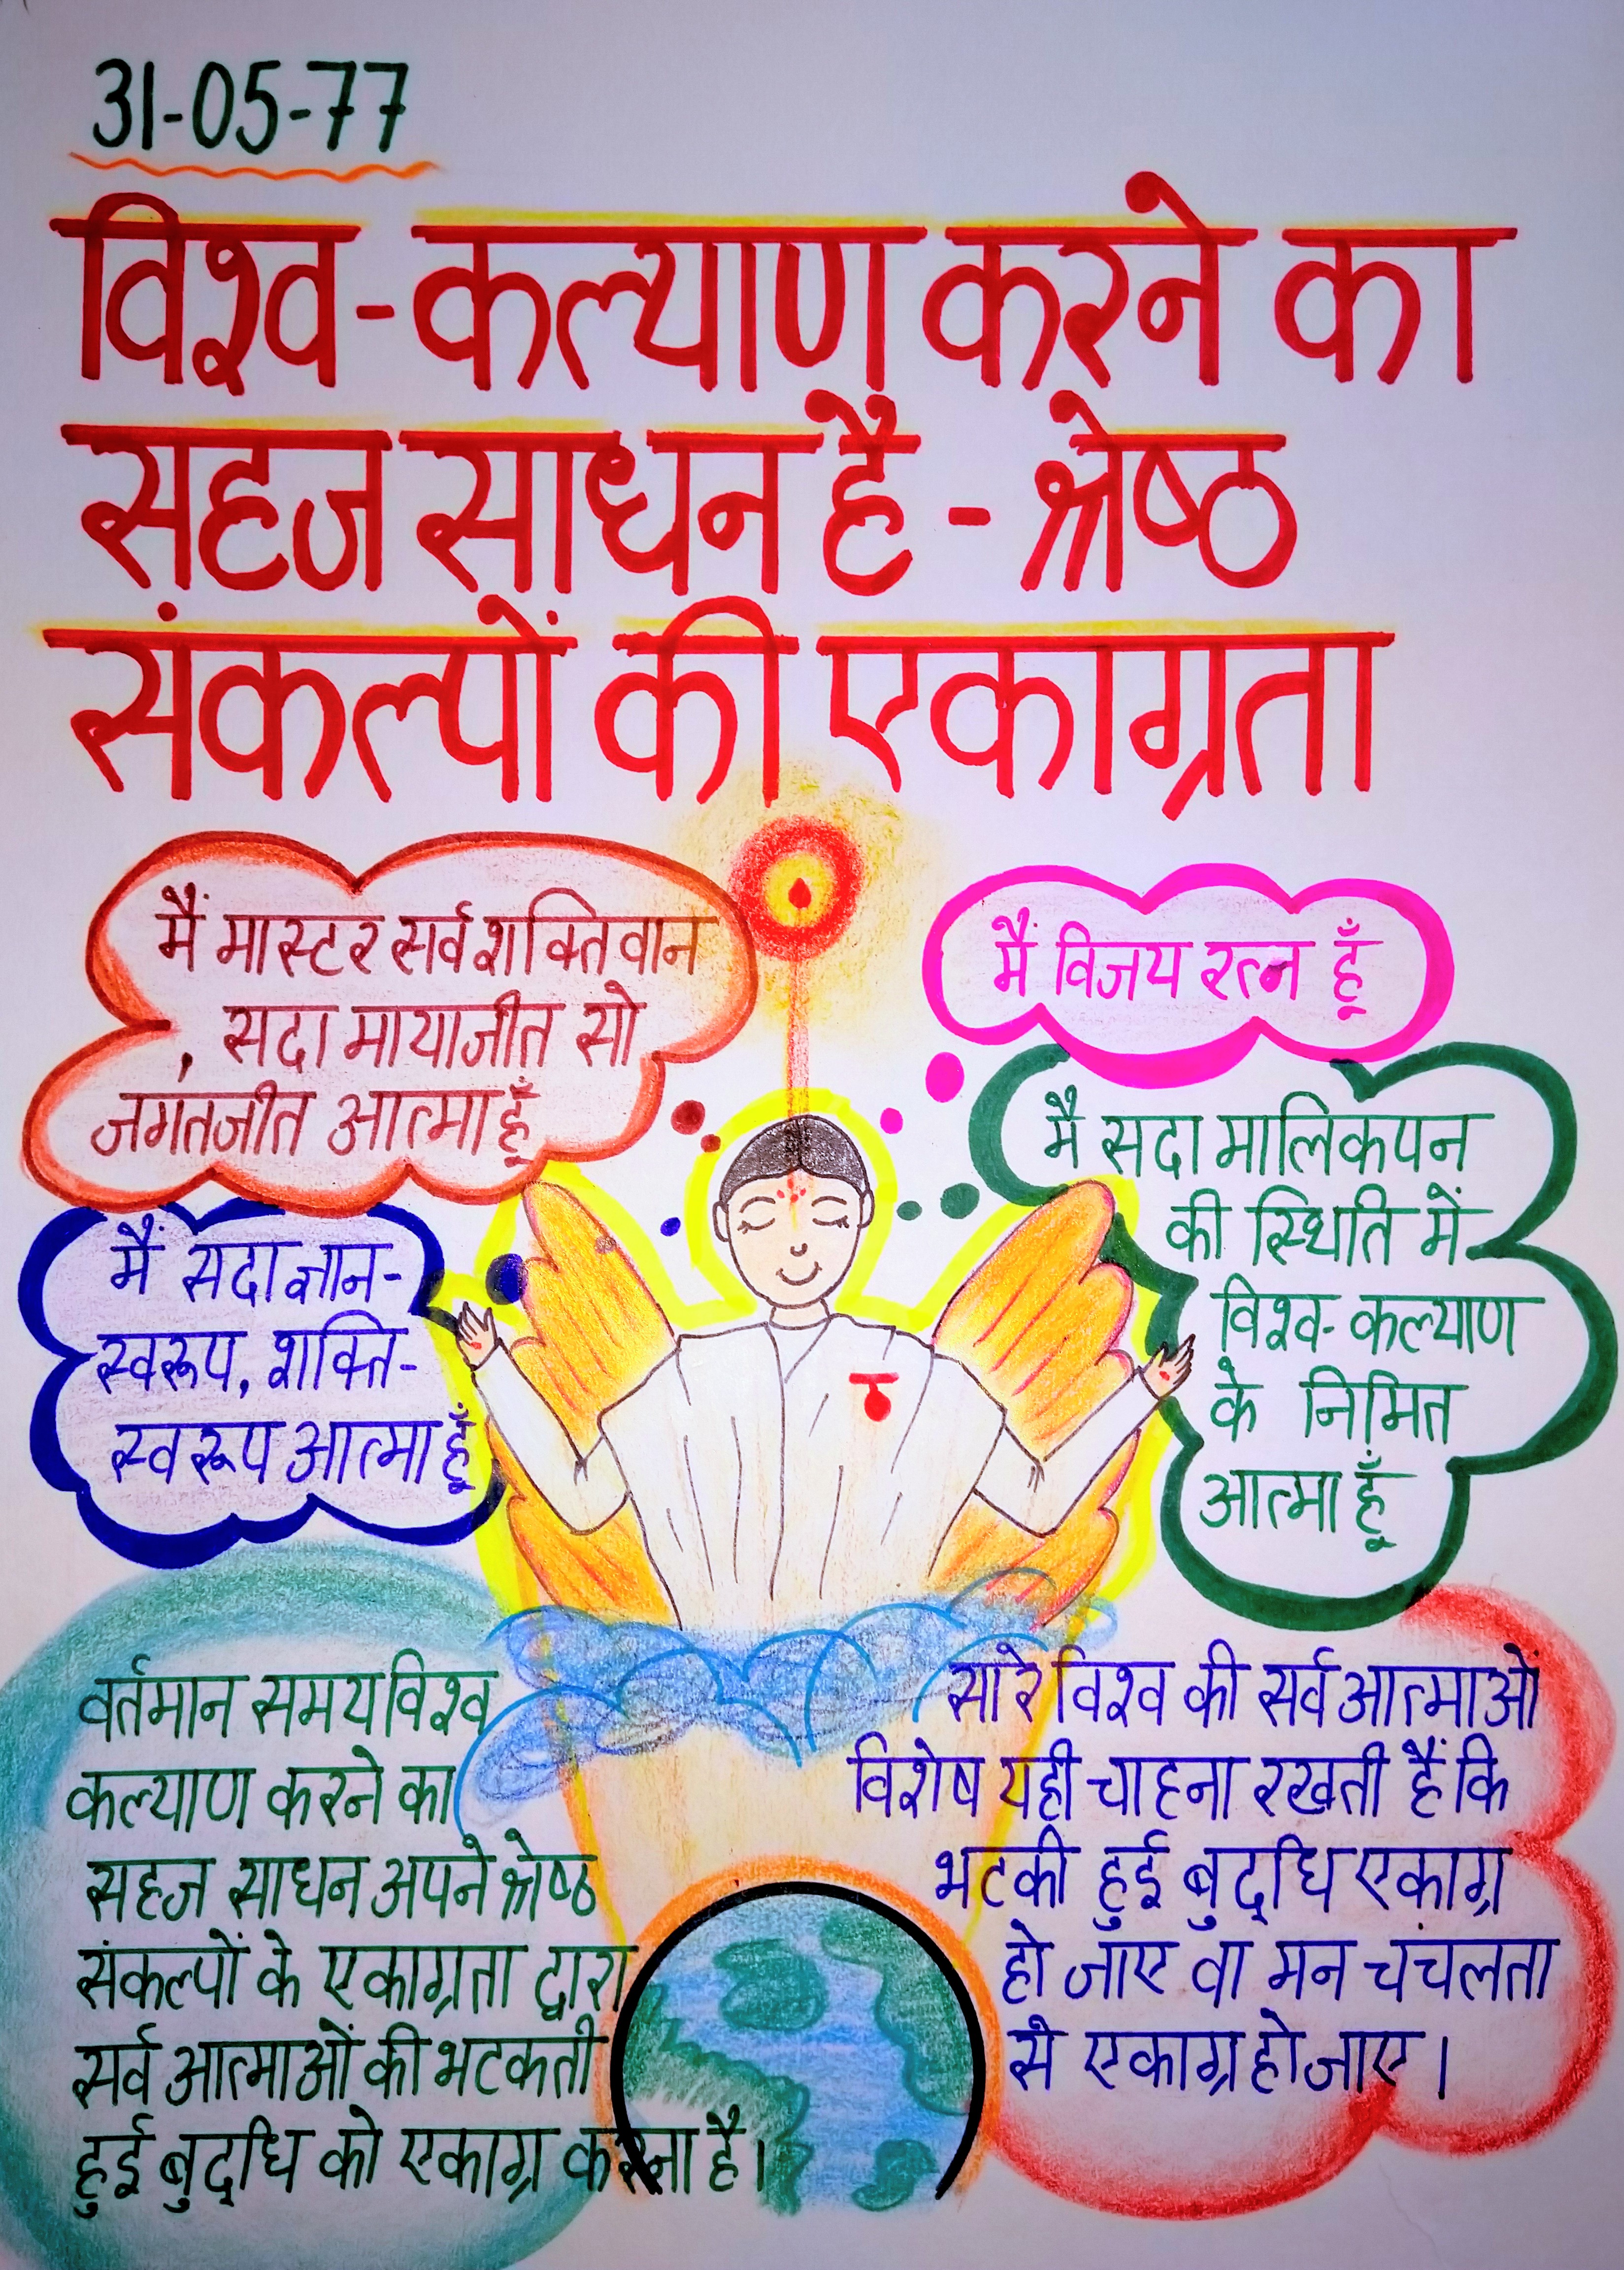 31-05-77
विश्व-कल्याण करने का
सहज साधन है - श्रेष्ठ
संकल्पों की एकाग्रता
मैं मास्टर सर्वशक्तिवान
, सदा मायाजीत सो
जगतजीत आत्मा हूँ
मैं विजय रत्न हूँ
मैं सदा ज्ञान-
स्वरूप, शक्ति-
स्वरूप आत्मा हूँ
मै सदा मालिकपन
की स्थिति में
विश्व-कल्याण
के निमित
आत्मा हूँ
वर्तमान समय विश्व
कल्याण करने का
सहज साधन अपने श्रेष्ठ
संकल्पों के एकाग्रता द्वारा
सर्व आत्माओं की भटकती
हुई बुद्धि को एकाग्र करना है।
सारे विश्व की सर्व आत्माओं
विशेष यही चाहना रखती हैं कि
भटकी हुई बुद्धि एकाग्र
हो जाए वा मन चंचलता
से एकाग्र हो जाए।